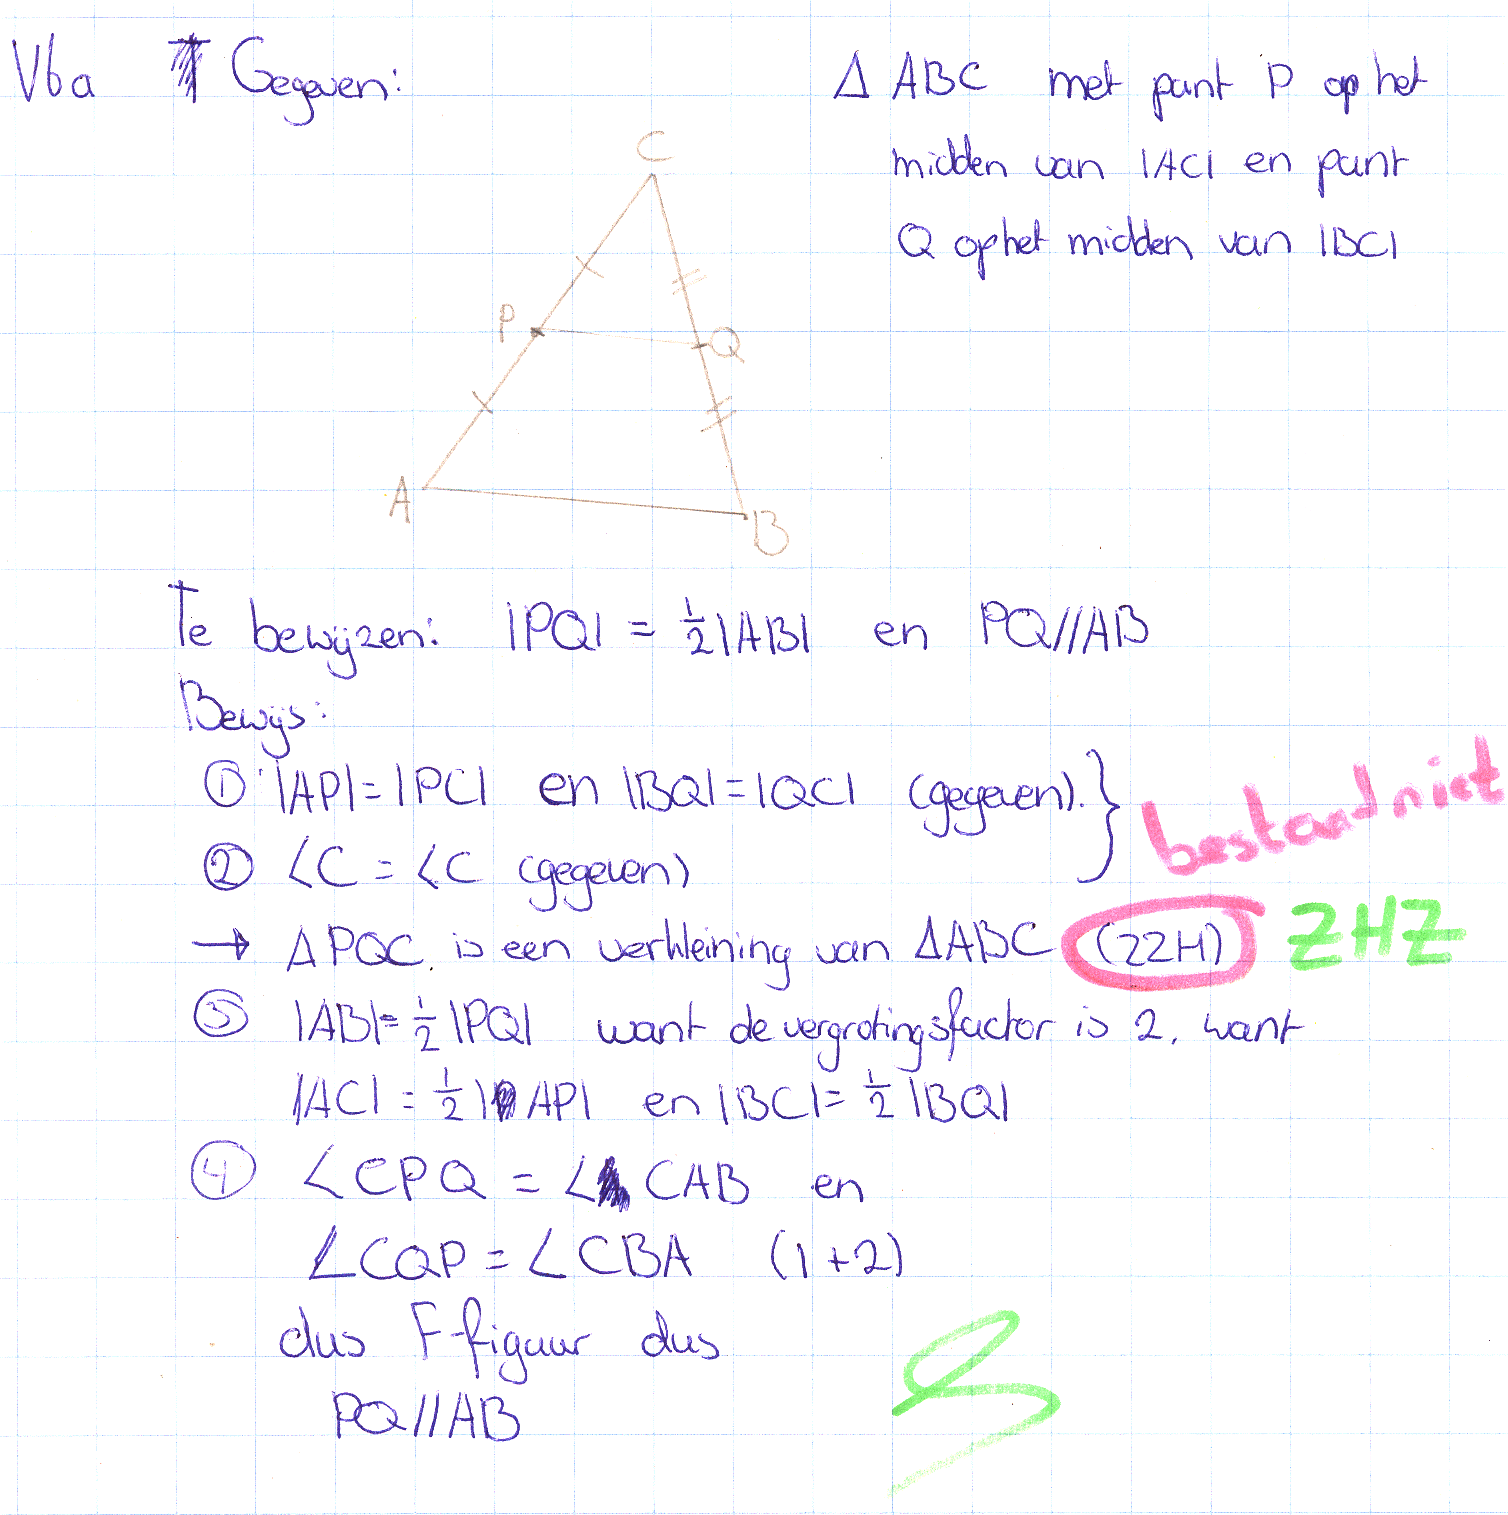 V6a Gegeven:
Δ ABC met punt P op het
midden van |AC| en punt
Q op het midden van |BC|
C
P
Q
A
B
Te bewijzen: |PQ| = ½|AB| en PQ//AB
Bewijs:
① |AP|=|PC| en |BQ|=|QC| (gegeven).
② ∠C = ∠C (gegeven)
bestaad niet
→ ΔPQC is een verkleining van ΔABC (ZZH) ZHZ
③ |AB|=½|PQ| want de vergrotingsfactor is 2, want
|AC| = ½|AP| en |BC|=½|BQ|
④ ∠CPQ = ∠CAB en
∠CQP = ∠CBA (1+2)
dus F-figuur dus
PQ//AB